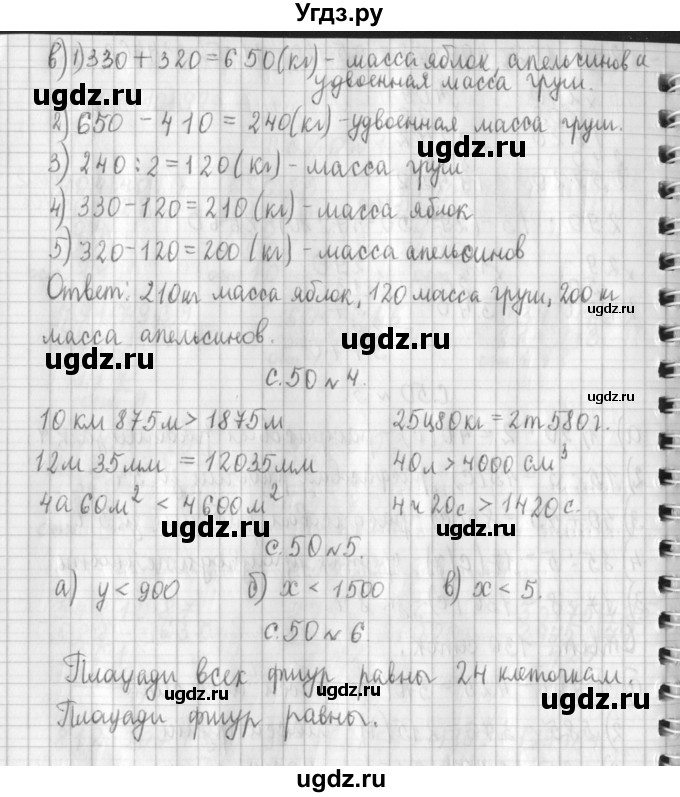 Угдз.ру
в) 1) 330 + 320 = 650 (кг) - масса яблок, апельсинов и
удвоенная масса груш.
2) 650 - 410 = 240 (кг) - удвоенная масса груш.
ugdz.ru
ugdz.ru
3) 240 : 2 = 120 (кг) - масса груш
4) 330 - 120 = 210 (кг) - масса яблок
5) 320 - 120 = 200 (кг) - масса апельсинов
Ответ: 210 кг масса яблок, 120 масса груш, 200 кг
ugdz.ru
масса апельсинов.
ugdz.ru
ugdz.ru
с. 50 № 4.
ugdz.ru
10 км 875 м > 1875 м 25ц 80 кг = 2 т 580 г.
12 м 35 мм = 12035 мм 40 л > 4000 см³
4 а 60 м² < 4600 м² 4 ч 20 с > 1420 с.
ugdz.ru
ugdz.ru
с. 50 № 5.
а) y < 900 б) x < 1500 в) x < 5.
с. 50 № 6.
Площади всех фигур равны 24 клеточкам.
ugdz.ru
ugdz.ru
ugdz.ru
Площади фигур равны.
ugdz.ru